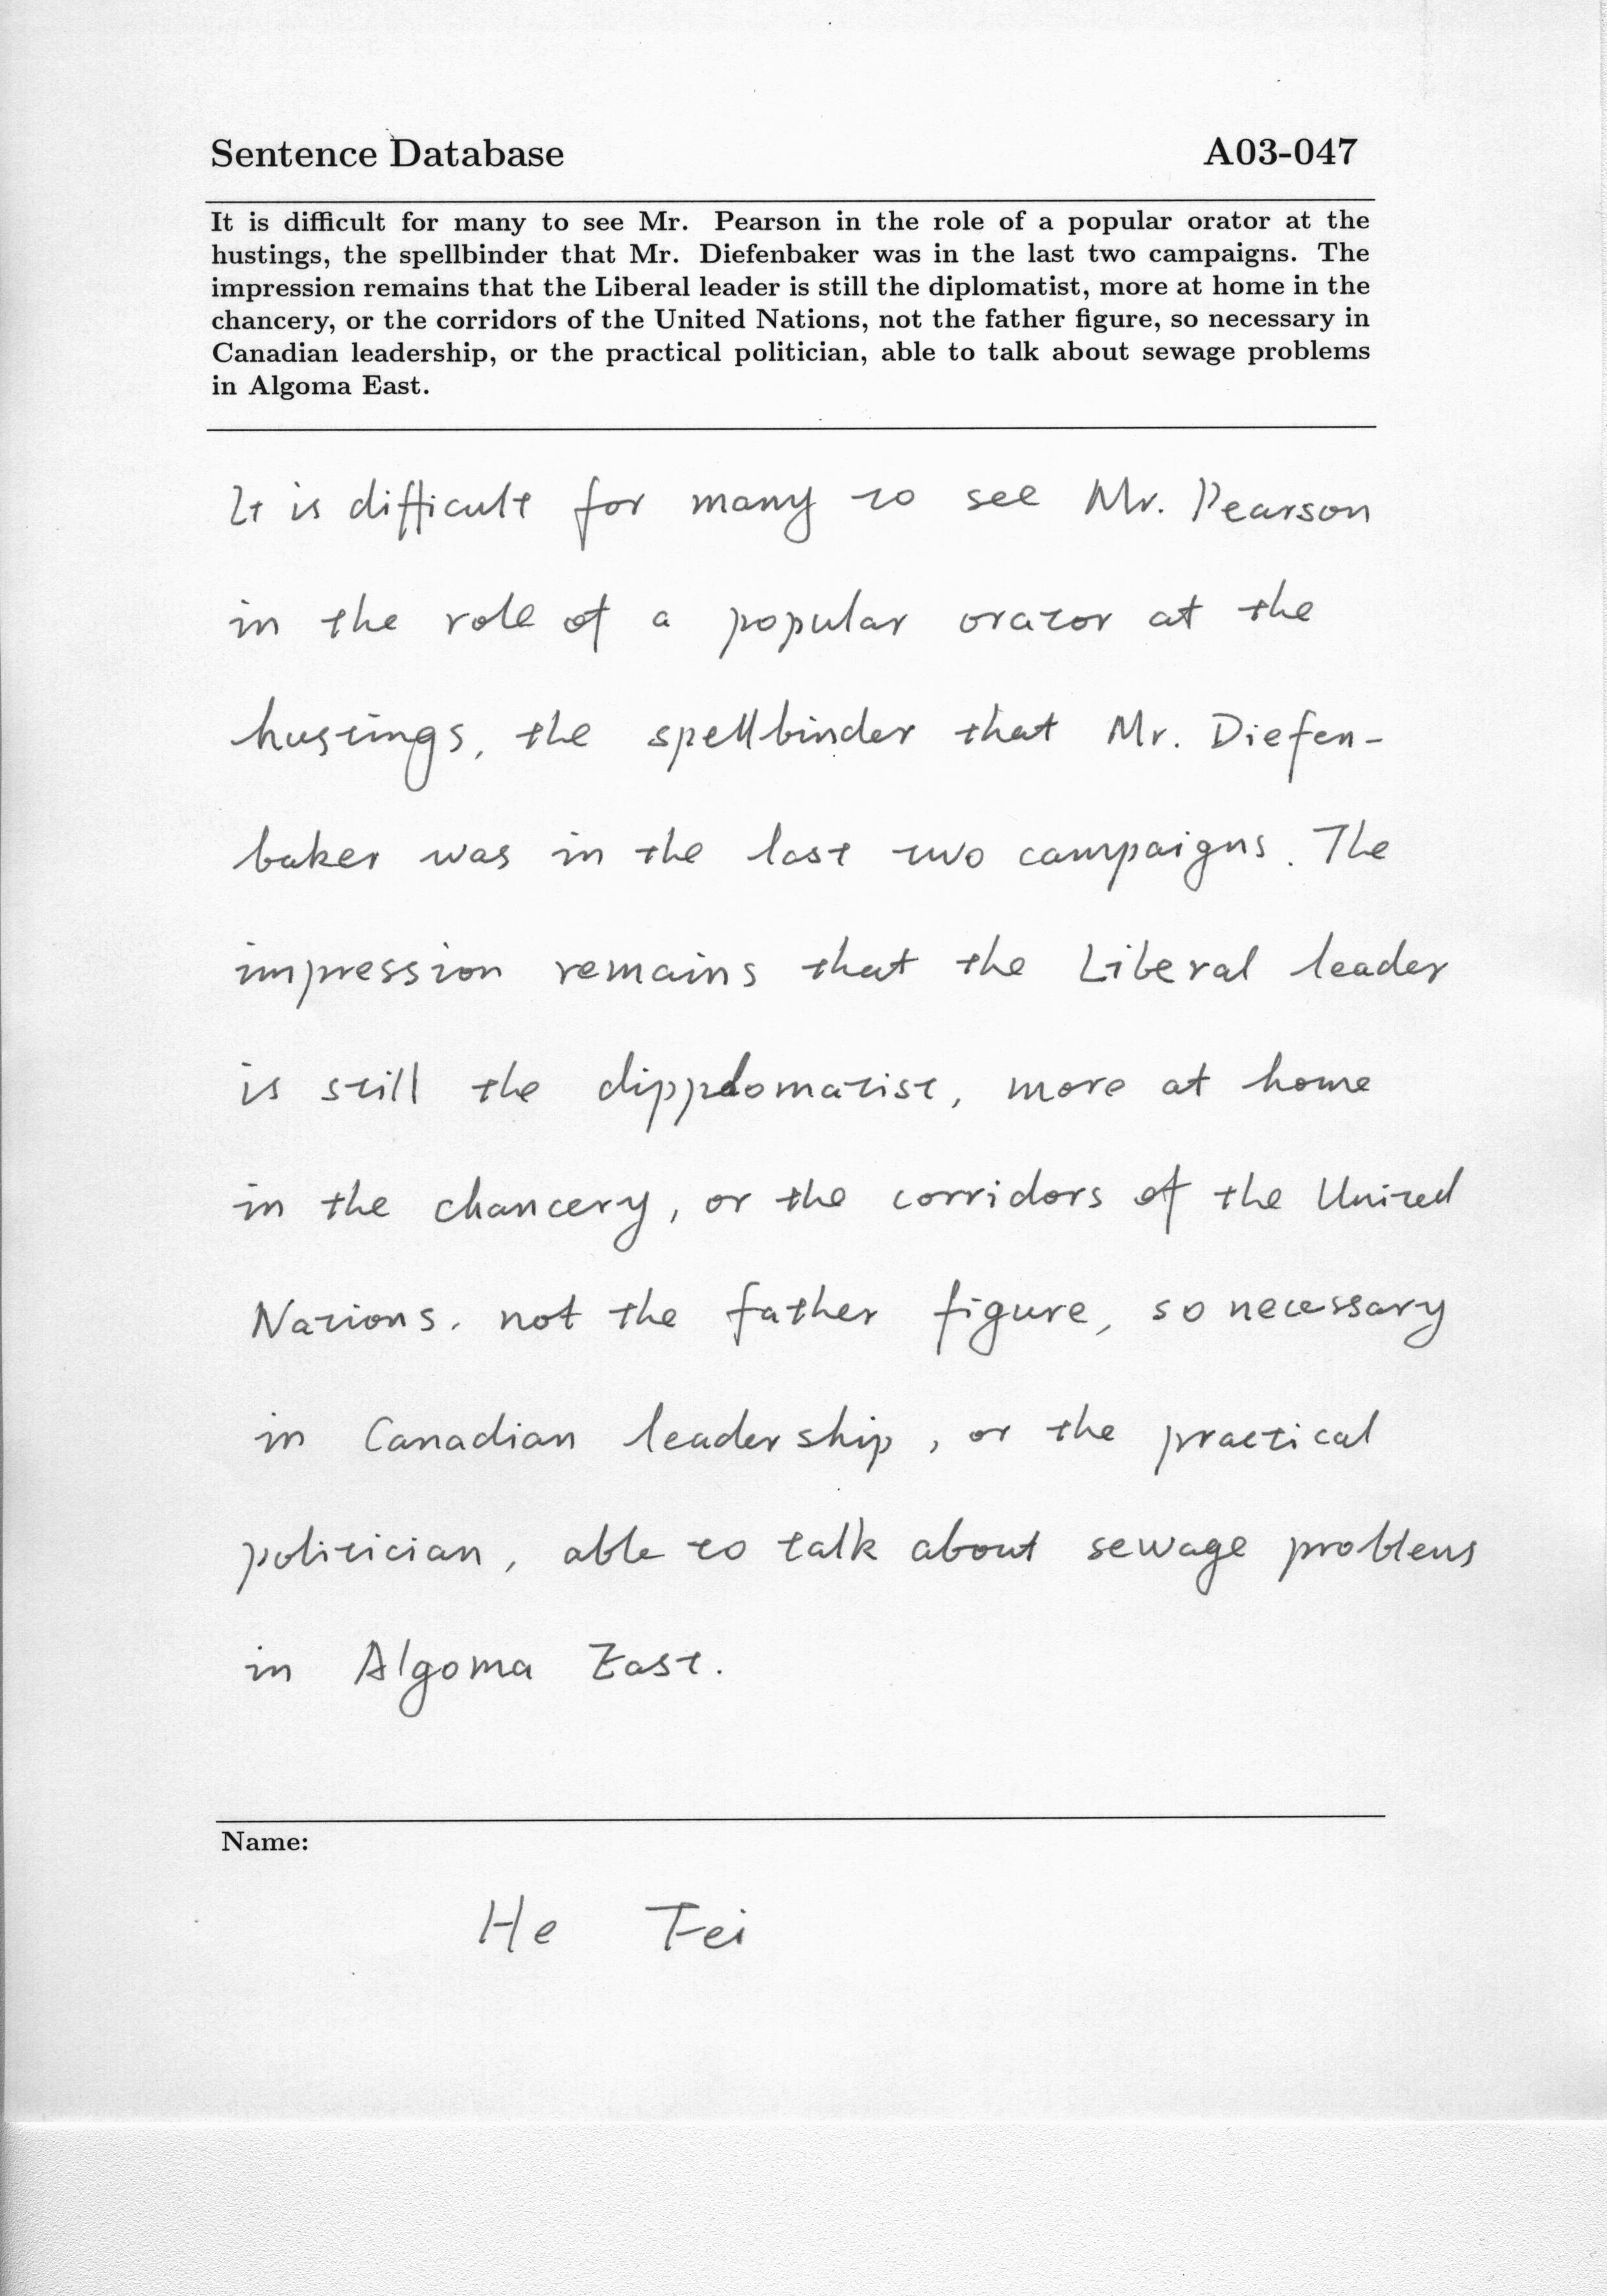 Sentence Database A03-047
It is difficult for many to see Mr. Pearson in the role of a popular orator at the
hustings, the spellbinder that Mr. Diefenbaker was in the last two campaigns. The
impression remains that the Liberal leader is still the diplomatist, more at home in the
chancery, or the corridors of the United Nations, not the father figure, so necessary in
Canadian leadership, or the practical politician, able to talk about sewage problems
in Algoma East.
It is difficult for many to see Mr. Pearson
in the role of a popular orator at the
hustings, the spellbinder that Mr. Diefen-
baker was in the last two campaigns. The
impression remains that the Liberal leader
is still the dipplomatist, more at home
in the chancery, or the corridors of the United
Nations. not the father figure, so necessary
in Canadian leadership, or the practical
politician, able to talk about sewage problems
in Algoma East.
Name:
He Fei